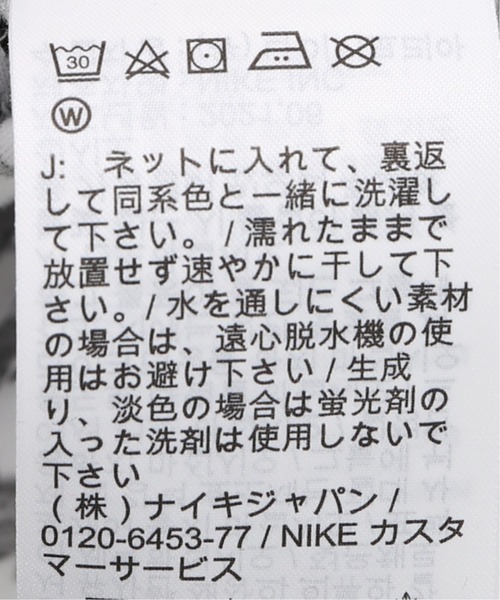 30
W
J: ネットに入れて、裏返
して同系色と一緒に洗濯し
て下さい。/ 濡れたままで
放置せず速やかに干して下
さい。/ 水を通しにくい素材
の場合は、遠心脱水機の使
用はお避け下さい / 生成
り、淡色の場合は蛍光剤の
入った洗剤は使用しないで
下さい
(株)ナイキジャパン /
0120-6453-77 / NIKE カスタ
マーサービス